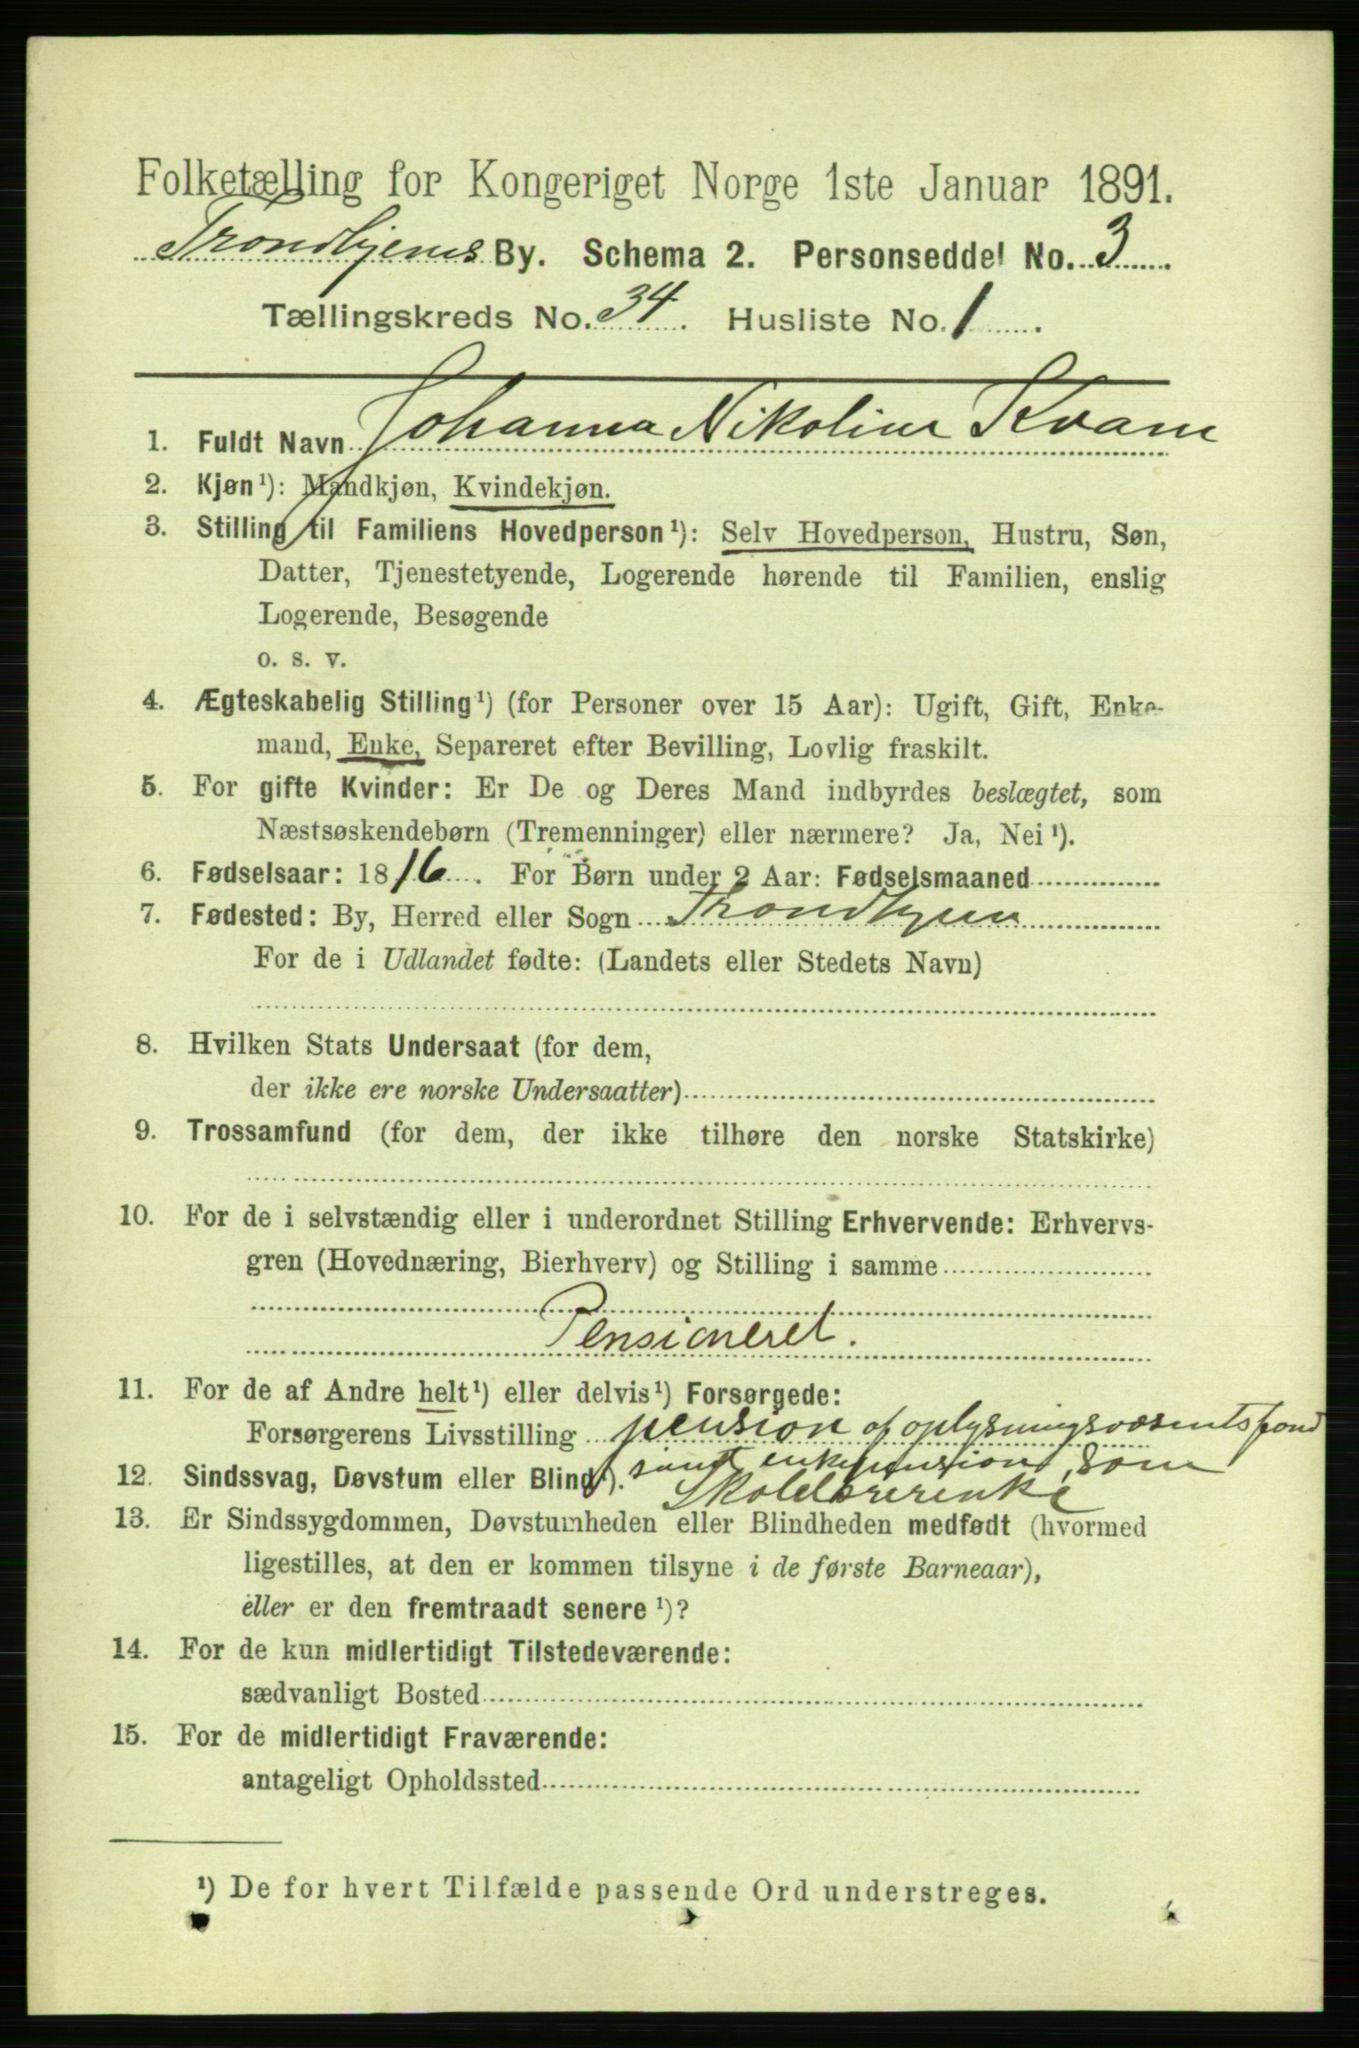 Folketælling for Kongeriget Norge 1ste Januar 1891.
Trondhjems By. Schema 2. Personseddel No. 3
Tællingskreds No. 34. Husliste No. 1.
1. Fuldt Navn Johanna Nikoline Kvam
2. Kjøn¹): Mandkjøn, Kvindekjøn.
3. Stilling til Familiens Hovedperson¹): Selv Hovedperson, Hustru, Søn,
Datter, Tjenestetyende, Logerende hørende til Familien, enslig
Logerende, Besøgende
o. s. v.
4. Ægteskabelig Stilling¹) (for Personer over 15 Aar): Ugift, Gift, Enke-
mand, Enke, Separeret efter Bevilling, Lovlig fraskilt.
5. For gifte Kvinder: Er De og Deres Mand indbyrdes beslægtet, som
Næstsøskendebørn (Tremenninger) eller nærmere? Ja, Nei¹).
6. Fødselsaar: 1816. For Børn under 2 Aar: Fødselsmaaned
7. Fødested: By, Herred eller Sogn Trondhjem
For de i Udlandet fødte: (Landets eller Stedets Navn)
8. Hvilken Stats Undersaat (for dem,
der ikke ere norske Undersaatter)
9. Trossamfund (for dem, der ikke tilhøre den norske Statskirke)
10. For de i selvstændig eller i underordnet Stilling Erhvervende: Erhvervs-
gren (Hovednæring, Bierhverv) og Stilling i samme
Pensioneret.
11. For de af Andre helt¹) eller delvis¹) Forsørgede:
Forsørgerens Livsstilling pension af oplysningsvæsentsfond
samt enkepension, som
12. Sindssvag, Døvstum eller Blind¹).
Skolelærerenke
13. Er Sindssygdommen, Døvstumheden eller Blindheden medfødt (hvormed
ligestilles, at den er kommen tilsyne i de første Barneaar),
eller er den fremtraadt senere¹)?
14. For de kun midlertidigt Tilstedeværende:
sædvanligt Bosted
15. For de midlertidigt Fraværende:
antageligt Opholdssted
¹) De for hvert Tilfælde passende Ord understreges.